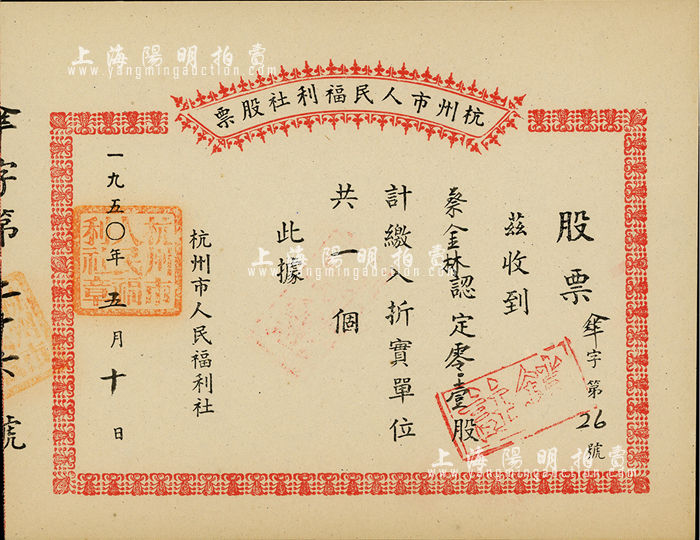 上海陽明拍賣
www.yangmingauction.com
杭州市人民福利社股票
股票
傘字第26號
茲收到
秦金林認定零壹股
計繳入折實單位
共一個
此據
杭州市人民福利社
一九五〇年五月十日
杭州市人民福利社章
傘字第二十六號
上海陽明拍賣
www.yangmingauction.com
上海陽明拍賣
www.yangmingauction.com